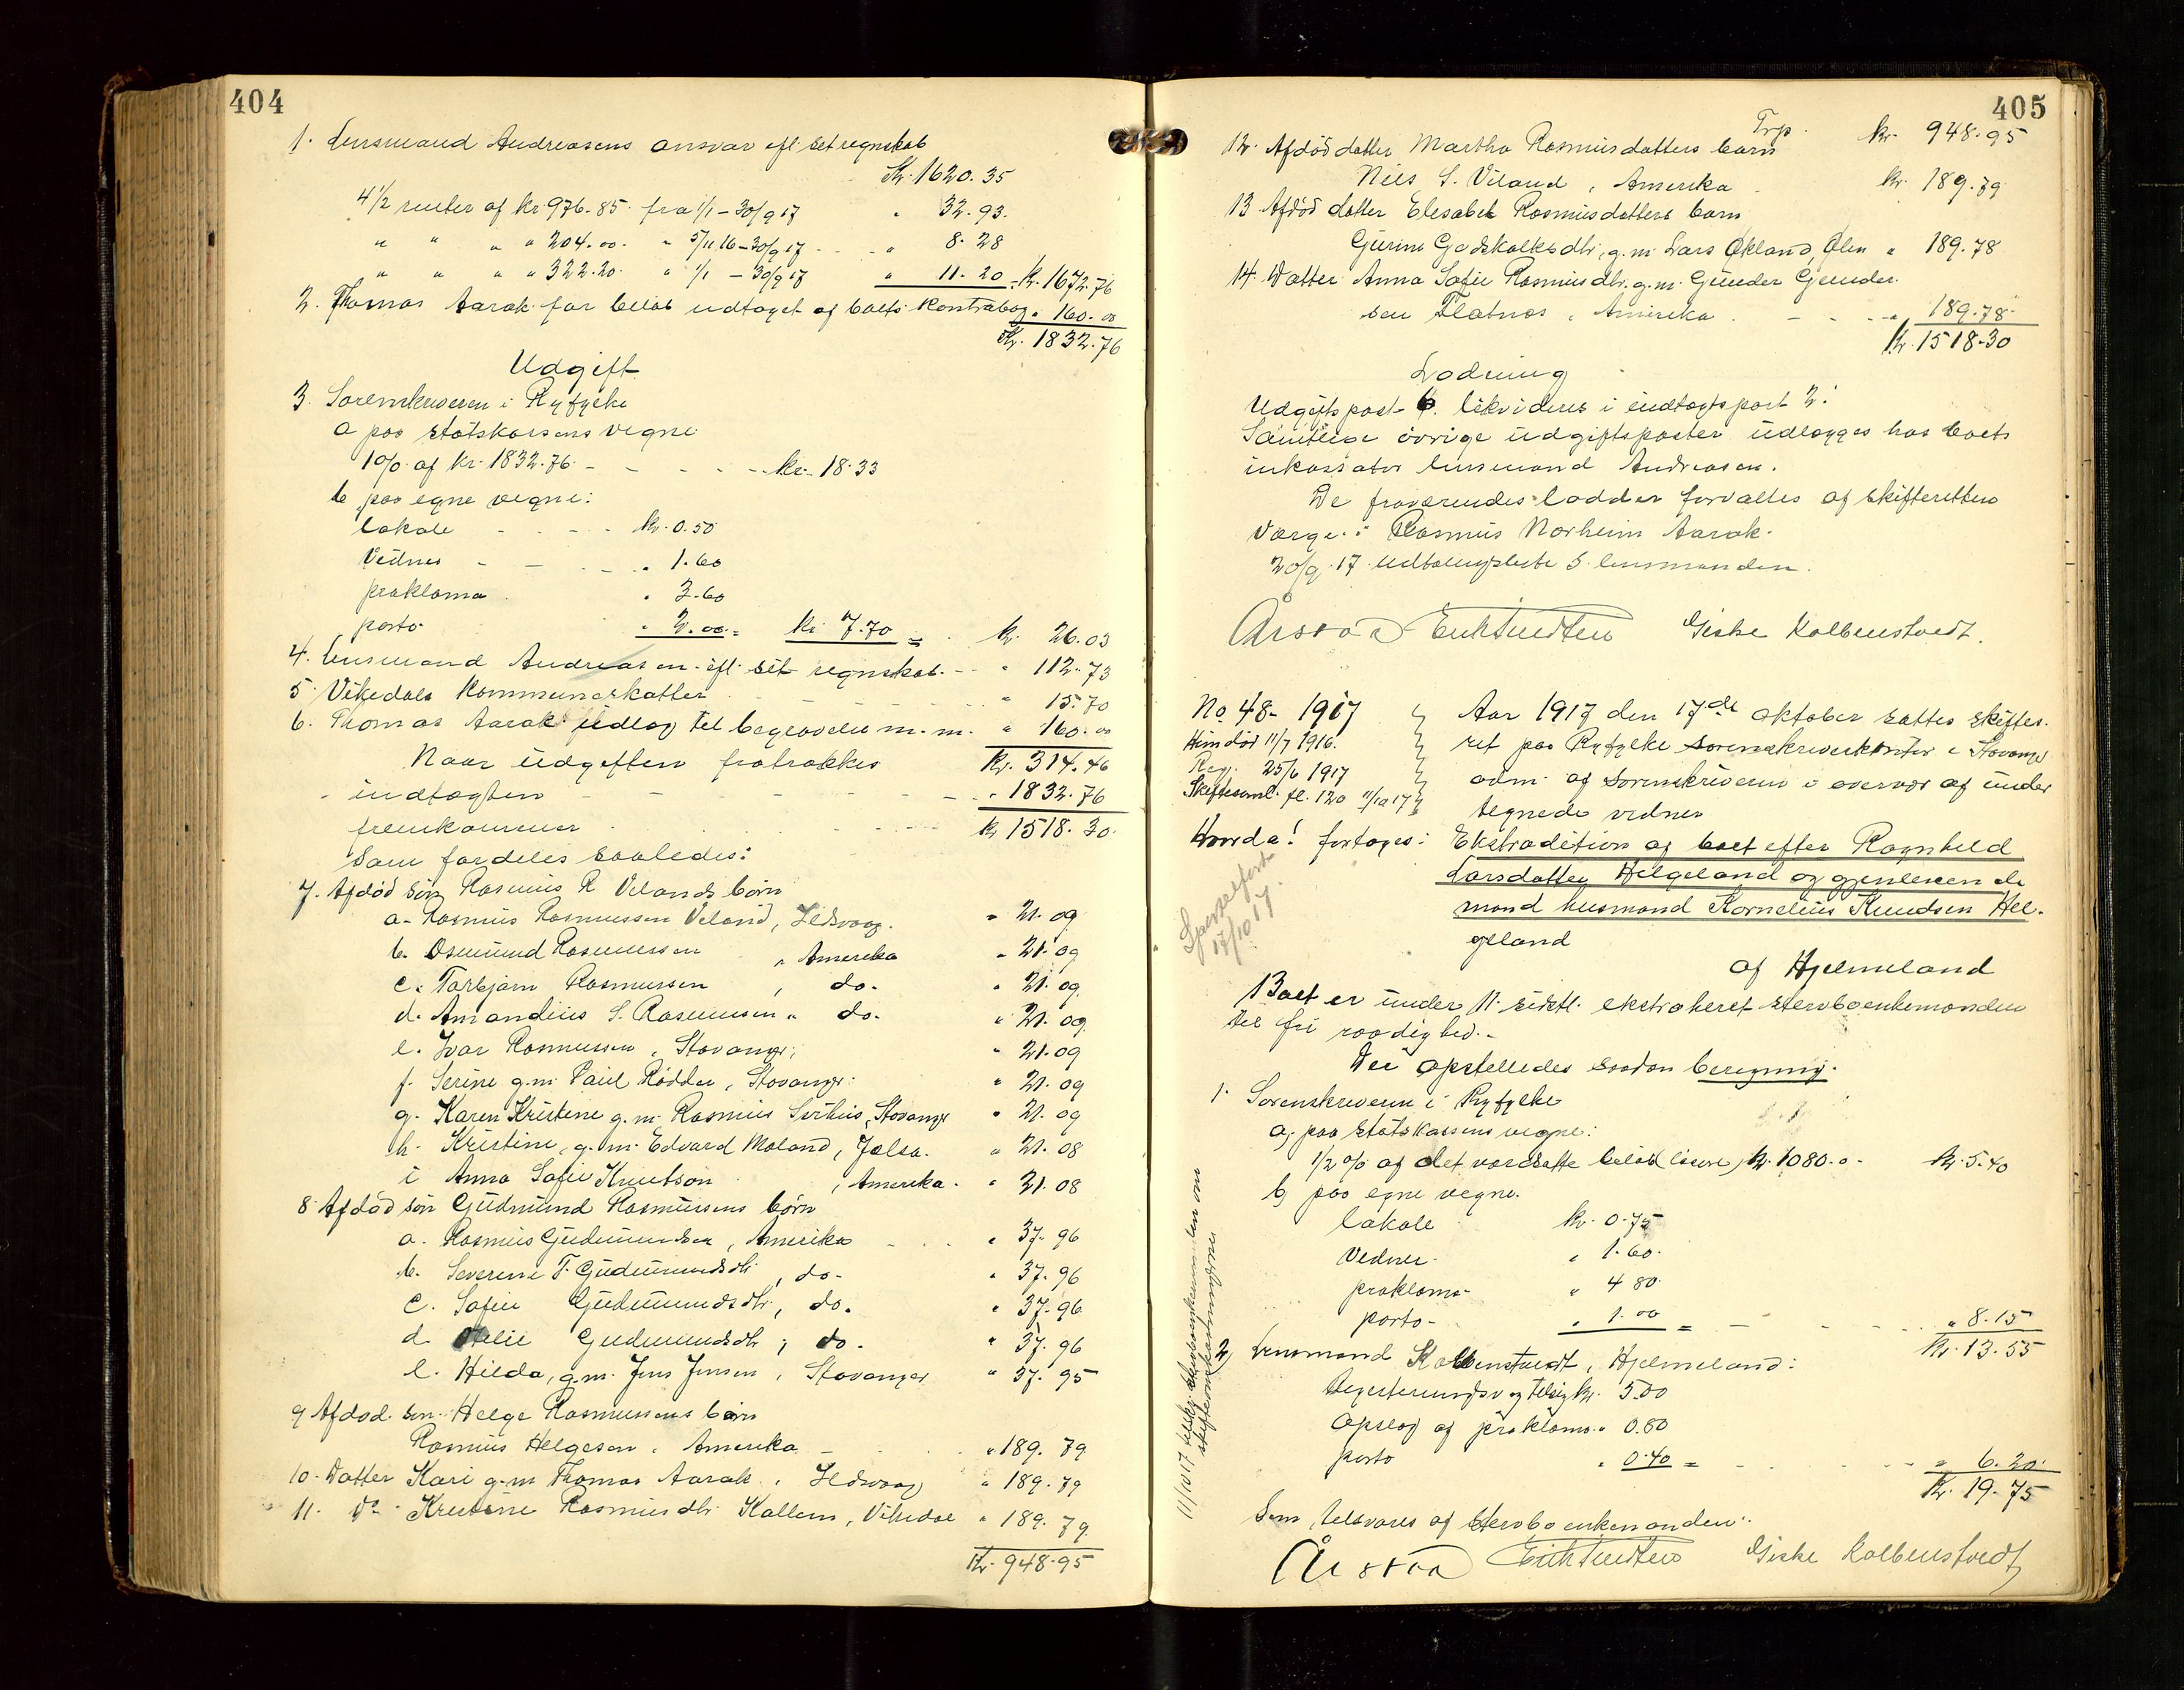 404
1. Lensmand Andreasens ansvar efl. sit regnskab
Kr. 1620.35
4 1/2 renter af kr 976.85 fra 1/1 - 30/9 17 " 32.93.
" " " " 204.00. " 5/11 16 - 30/9 17 - - " 8.28
" " " " 322.20. " 1/1 - 30/9 17 " 11.20 = Kr. 1672.76
2. Thomas Aarak for beløb udtaget af boets Kontrabog " 160.00
Kr. 1832.76
Udgift
3. Sorenskriveren i Ryfylke
a paa statskassens vegne
1% af kr. 1832.76 - - - - kr. 18.33
b paa egne vegne:
lokale - - - kr. 0.50
Vidner - - - " 1.60
proklama . " 3.60
porto " 2.00 = kr 7.70 = kr. 26.03
4. Lensmand Andreasen efl. sit regnskab. - - " 112.73
5. Vikedals Kommuneskatter " 15.70
6. Thomas Aarak udlæg til begravelse m. m. " 160.00
Naar udgiften fratrækkes Kr. 314.46
indtægten - - - - " 1832.76
fremkommer kr 1518.30
Som fordeles saaledes:
7. Afdød søn Rasmus R Velands børn
a. Rasmus Rasmussen Veland, Ildsvaag. " 21.09
b. Osmund Rasmussen , Amerika " 21.09
c. Torbjørn Rasmussen , do. " 21.09
d. Amandius S. Rasmussen " do. " 21.09
e. Ivar Rasmussen, Stavanger, " 21.09
f. Serine g.m. Paul Rødder, Stavanger. " 21.09
g. Karen Kristine g.m. Rasmus Svihus, Stavanger " 21.09
h. Kristine, g.m. Edvard Moland, Jelsa. " 21.08
i Anna Sofie Knutson , Amerika. " 21.08
8 Afdød søn Gudmund Rasmussens børn
a. Rasmus Gudmundsen, Amerika - - " 37.96
b. Severine T. Gudmundsdtr , do. " 37.96
c. Sofie Gudmundsdtr, do. " 37.96
d. Gudmundsdtr, do. " 37.96
e. Hilda, g.m. Jens Jensen, Stavanger " 37.95
9 Afdød søn Helge Rasmussens barn
Rasmus Helgesen, Amerika - " 189.79
10. Datter Kari g.m Thomas Aarak, Ildsvaag " 189.79
11. Do Kristine Rasmusdtr Kallem, Vikedal " 189.79
Kr. 948.95
405
Trp. kr. 948.95
12. Afdød datter Martha Rasmusdatters barn
Nils S. Viland, Amerika kr. 189.79
13 Afdød datter Elesabet Rasmusdatters barn
Gurine Godskalksdtr, g.m. Lars Økland, Ølen " 189.78
14. Datter Anna Sofie Rasmusdtr. g.m. Gunder Gunder
sen Flatnes, Amerika - - - " 189.78
Kr. 1518.30
Lodning
Udgiftspost 6. likvideres i indtægtspost 2.
Samtlige øvrige udgiftsposter udlægges hos boets
inkassator lensmand Andreasen.
De fraværendes lodder forvaltes af skifteretten
Værge: Rasmus Norheim Aarak.
20/9 17 udbetalingsliste t. lensmanden.
Årstad Erik Knutsen Giske Kolbenstvedt.
No 48 - 1917
Hun død 11/7 1916.
Reg. 25/6 1917
Skiftesaml. fl. 120 11/10 17
Aar 1917 den 17de oktober sattes skifte-
ret paa Ryfylke sorenskriverkontor i Stavanger
adm. af sorenskriveren i overvær af under
tegnede vidner
Hvorda! foretoges: Ekstradition af boet efter Ragnhild
Larsdatter Helgeland og gjenlevende
mand husmand Kornelius Knudsen Hel-
geland
17/10 17.
af Hjelmeland
Boet er under 11. sidstl. ekstraheret stervboenkemanden
til fri raadighed. -
Der opstilledes saadan beregning.
1. Sorenskriveren i Ryfylke
a, paa statskassens vegne:
1/2 % af det værdsatte beløb (løsøre) kr. 1080.0 - kr. 5.40
b, paa egne vegne.
lokale kr. 0.75
Vidner. " 1.60.
proklama " 4 80.
porto - " 1.00 = - - - " 8.15
Kr. 13.55
2, Lensmand Kolbenstvedt, Hjelmeland:
Registreringsv og tilsig kr. 5.00
Opslag af proklama " 0.80
porto " 0.40 = - - - " 6.20.
Kr. 19.75
Som tilsvares af stervboenkemanden.
Årstad Erik Knutsen Giske Kolbenstvedt
11/10 17 tilskr. stervboenkemanden om
skifteomkostningerne